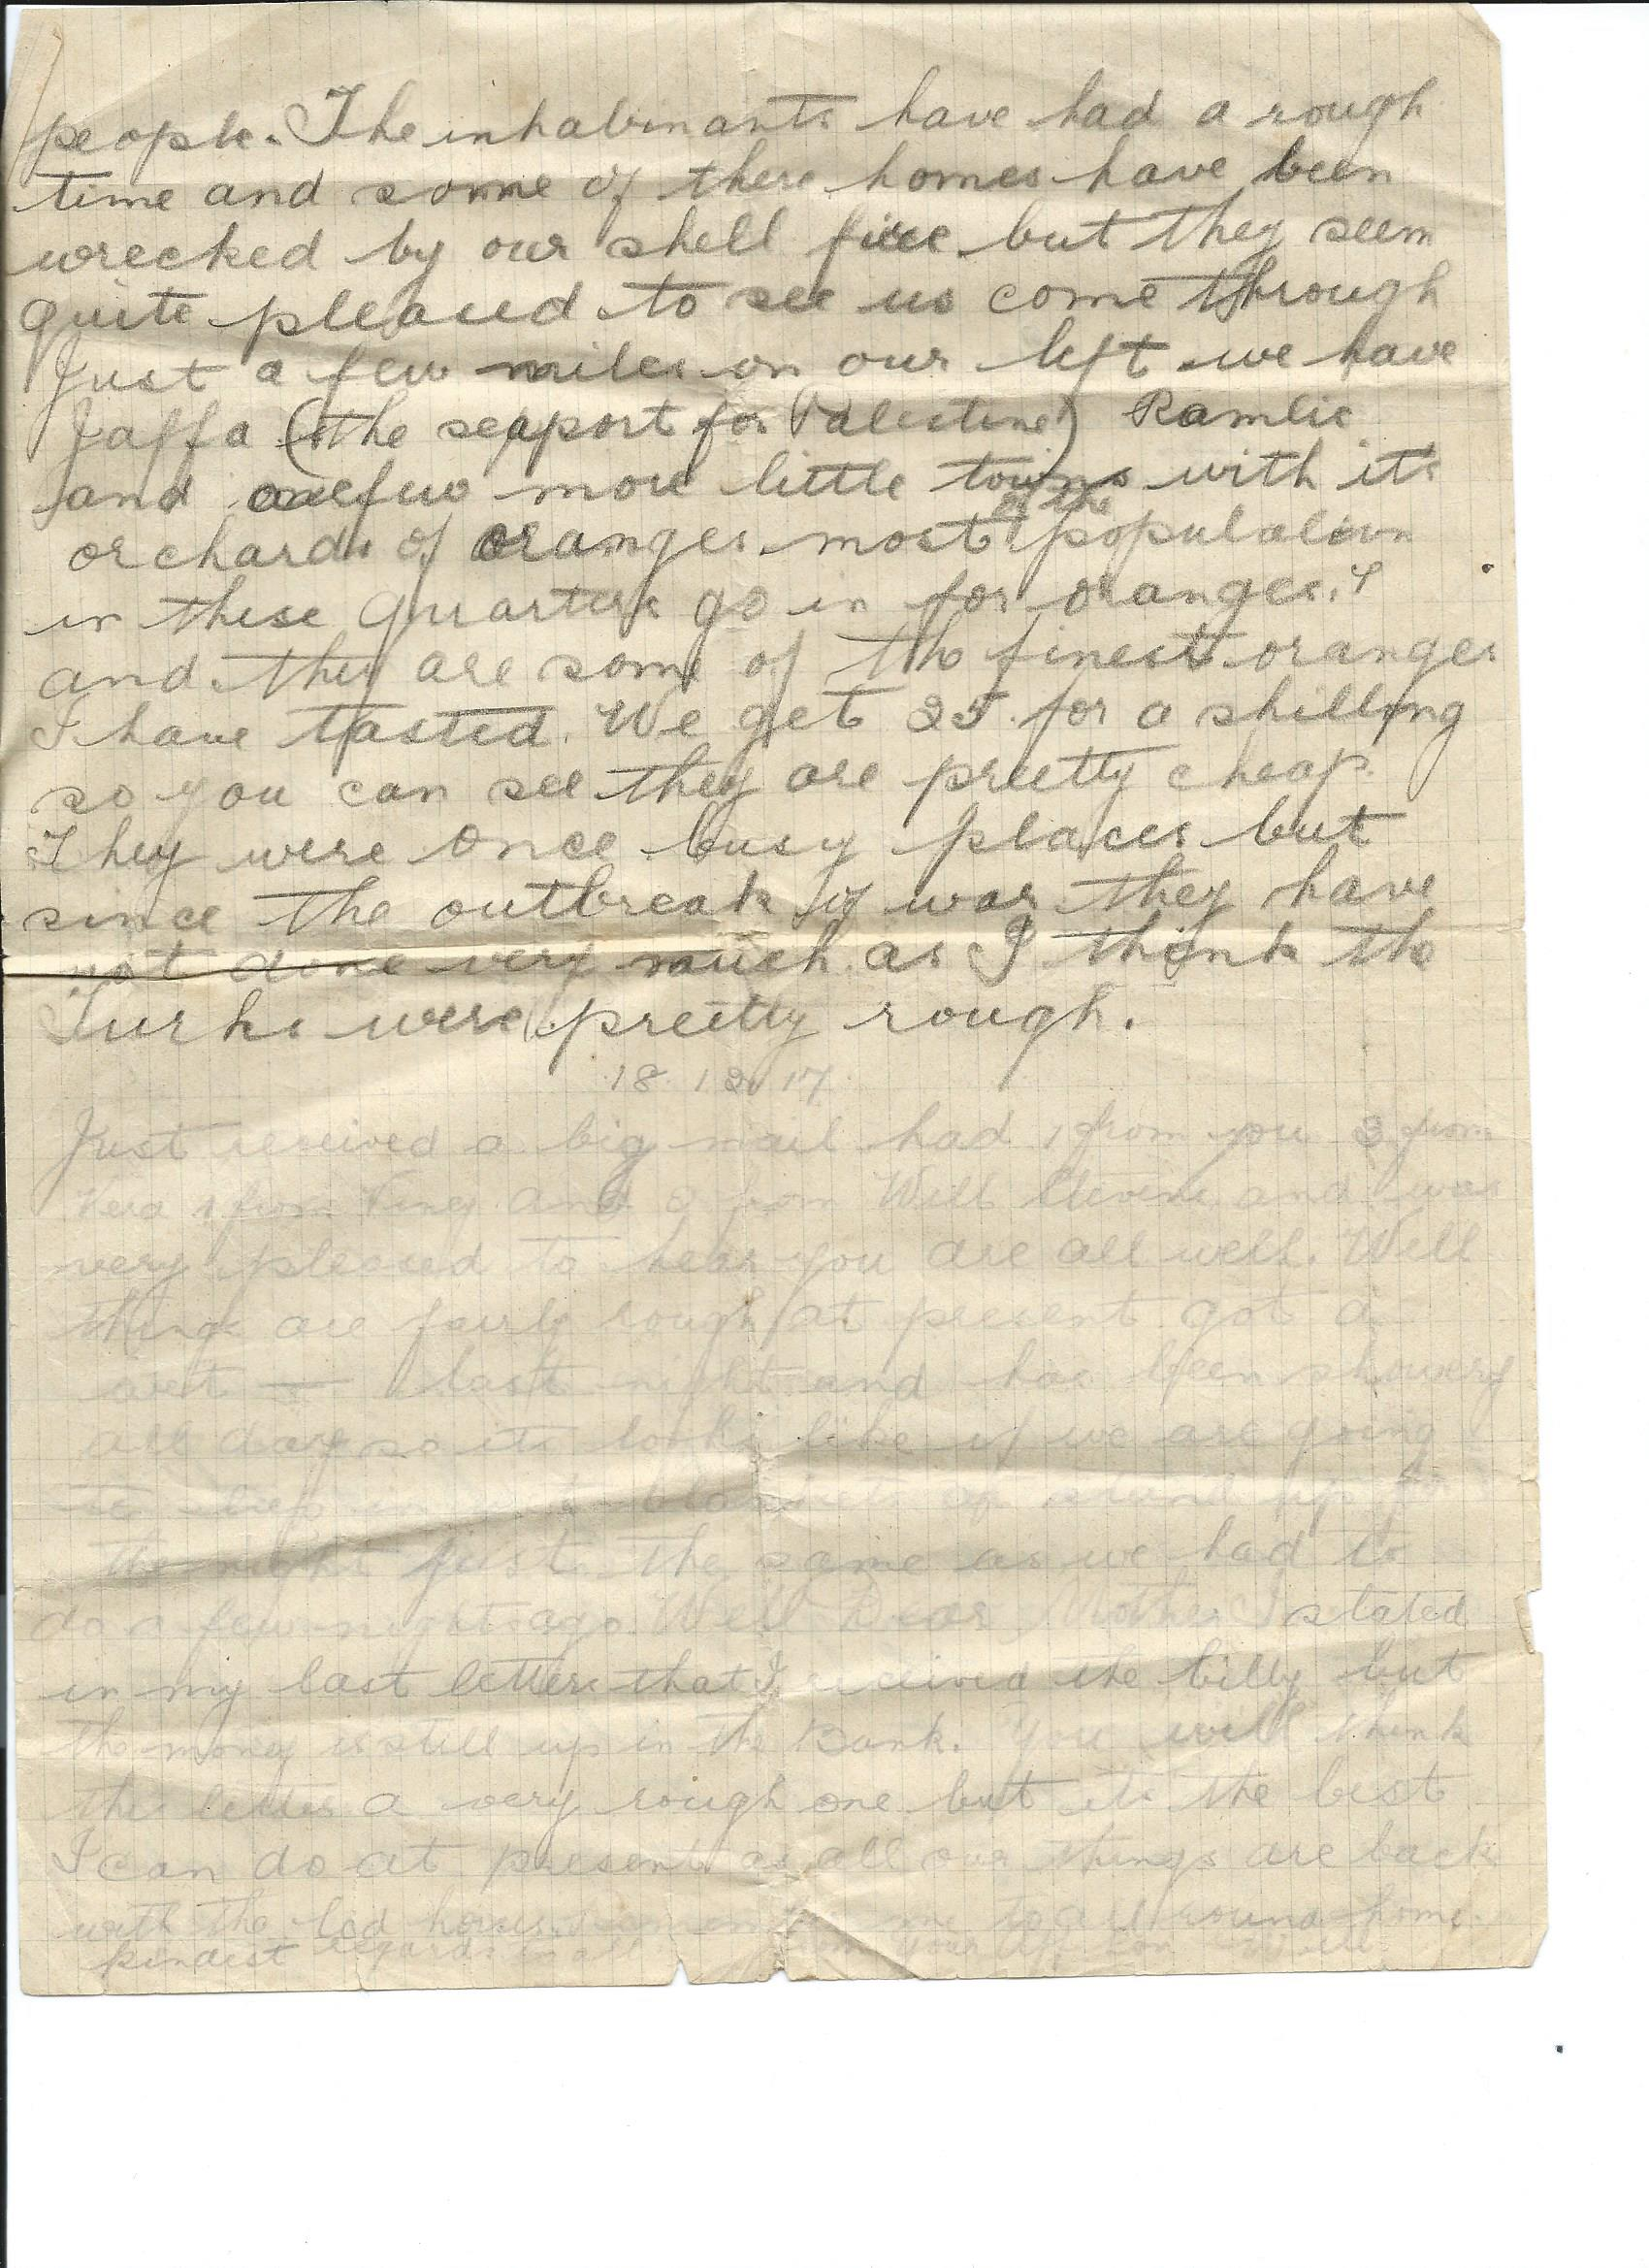 people. The inhabinants have had a rough
time and some of there homes have been
wrecked by our shell fire but they seem
quite pleased to see us come through
Just a few miles on our left we have
Jaffa (the seaport for Palestine) Ramlie
and a few more little towns with its
orchards of oranges most of the population
in these quarters go in for oranges.
and they are some of the finest oranges
I have tasted. We get 25 for a shilling
so you can see they are pretty cheap.
They were once busy places but
since the outbreak of war they have
not done very much as I think the
Turks were pretty rough.
18.12.17.
Just received a big mail had 1 from you 3 from
Vera 1 from and from Will and was
very pleased to hear you are all well. Well
things are fairly rough at present got a
wet last night and has been showery
all day so its looks like if we are going
to sleep in wet blankets or stand up for
the night just the same as we had to
do a few nights ago. Well Dear Mother I stated
in my last letter that I received the billy but
the money is still up in the Bank. You will think
the letter a very rough one but its the best
I can do at present as all our things are back
with the led horses. me to all round home.
kindest regards to all from your Aff Son